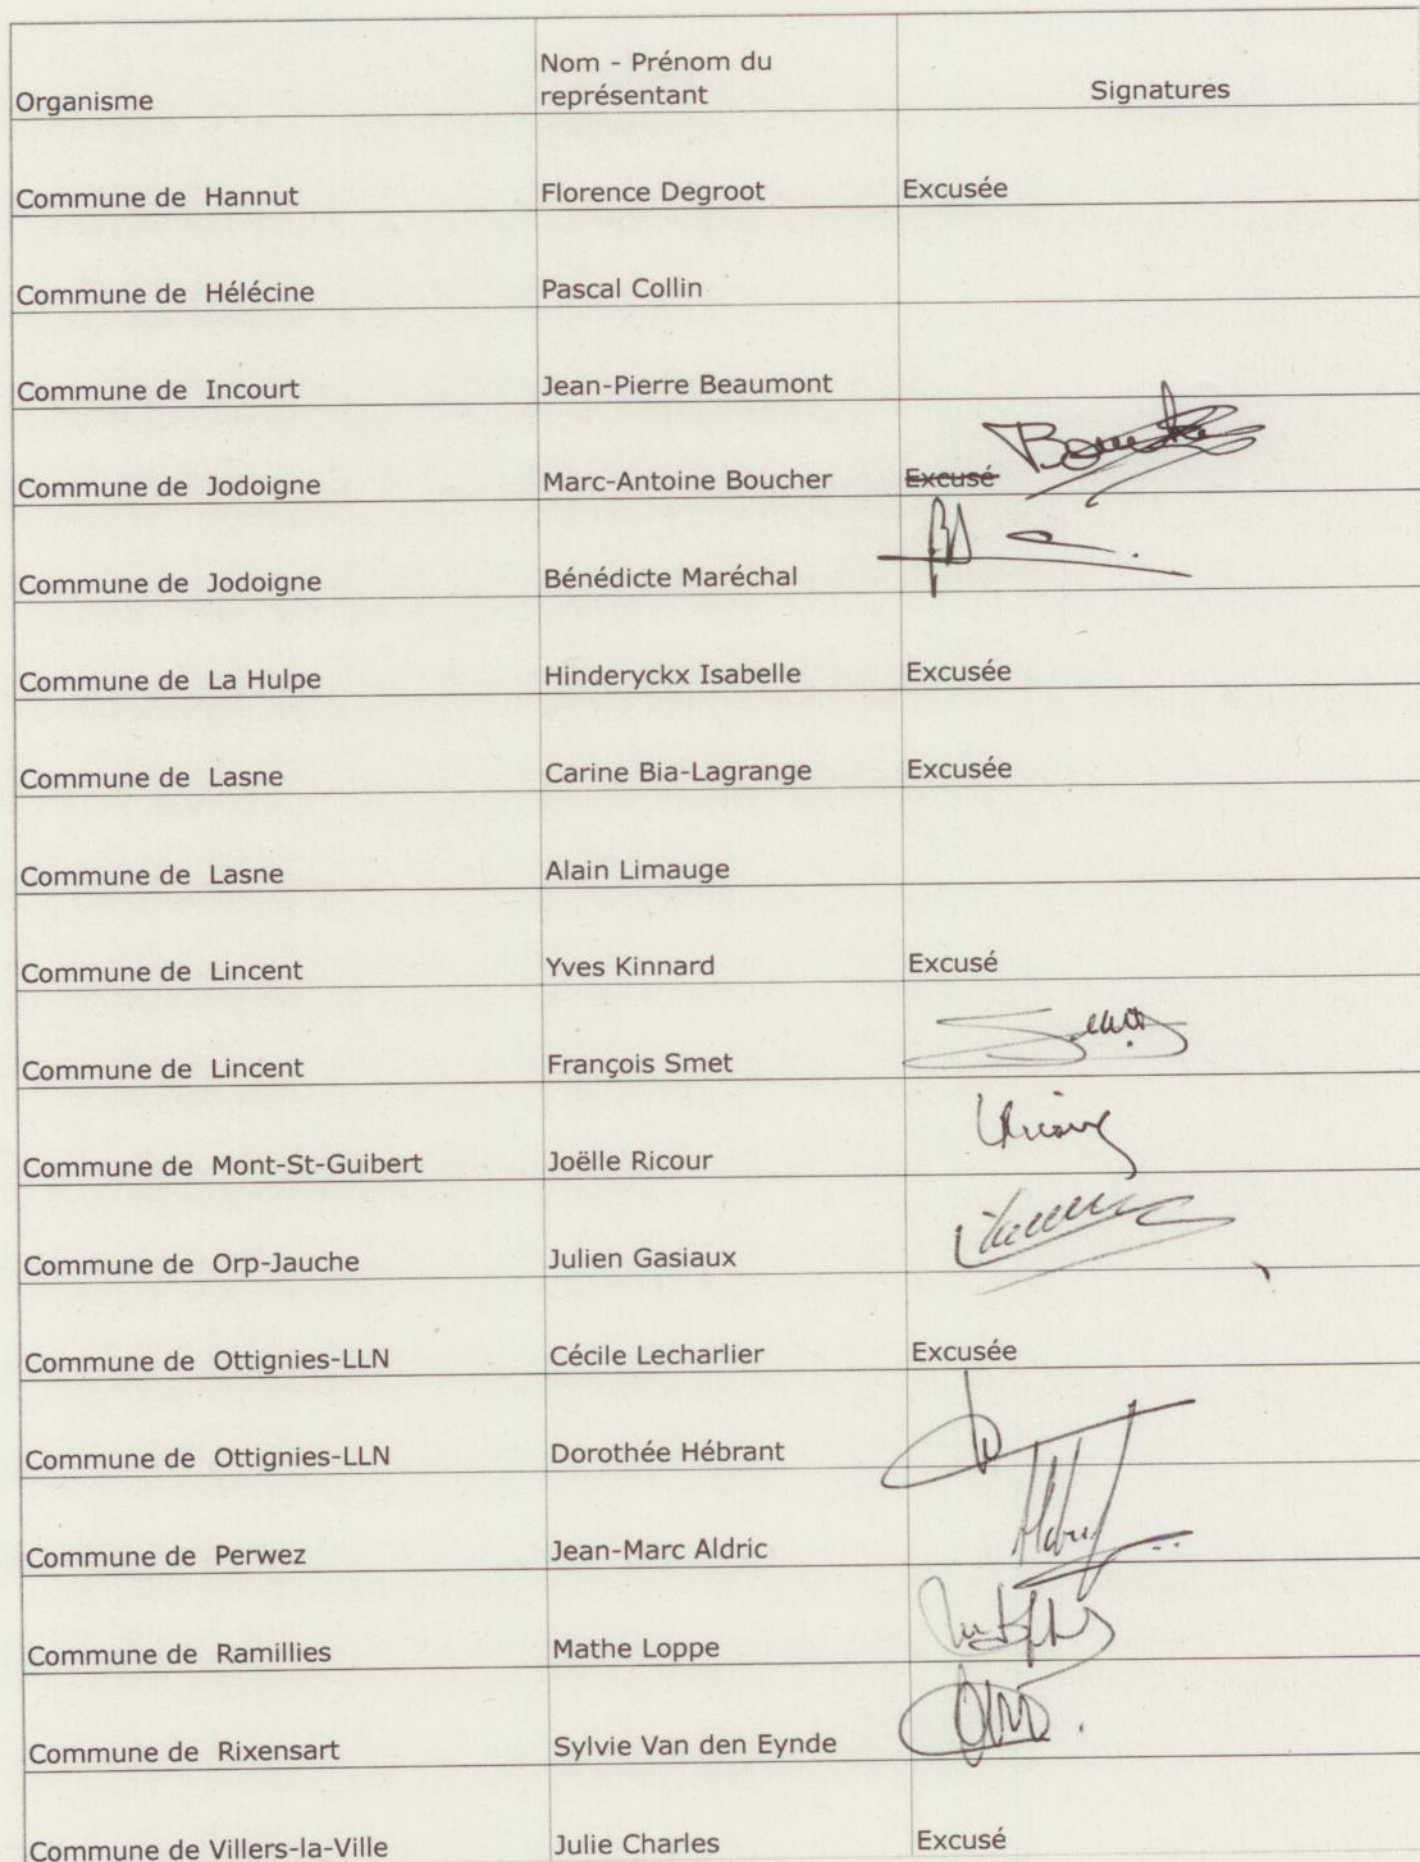 Organisme
Nom - Prénom du
représentant
Signatures
Commune de Hannut Florence Degroot Excusée
Commune de Hélécine Pascal Collin
Commune de Incourt Jean-Pierre Beaumont
Commune de Jodoigne Marc-Antoine Boucher Excusé
Commune de Jodoigne Bénédicte Maréchal
Commune de La Hulpe Hinderyckx Isabelle Excusée
Commune de Lasne Carine Bia-Lagrange Excusée
Commune de Lasne Alain Limauge
Commune de Lincent Yves Kinnard Excusé
Commune de Lincent François Smet
Commune de Mont-St-Guibert Joëlle Ricour
Commune de Orp-Jauche Julien Gasiaux
Commune de Ottignies-LLN Cécile Lecharlier Excusée
Commune de Ottignies-LLN Dorothée Hébrant
Commune de Perwez Jean-Marc Aldric
Commune de Ramillies Mathe Loppe
Commune de Rixensart Sylvie Van den Eynde
Commune de Villers-la-Ville Julie Charles Excusé